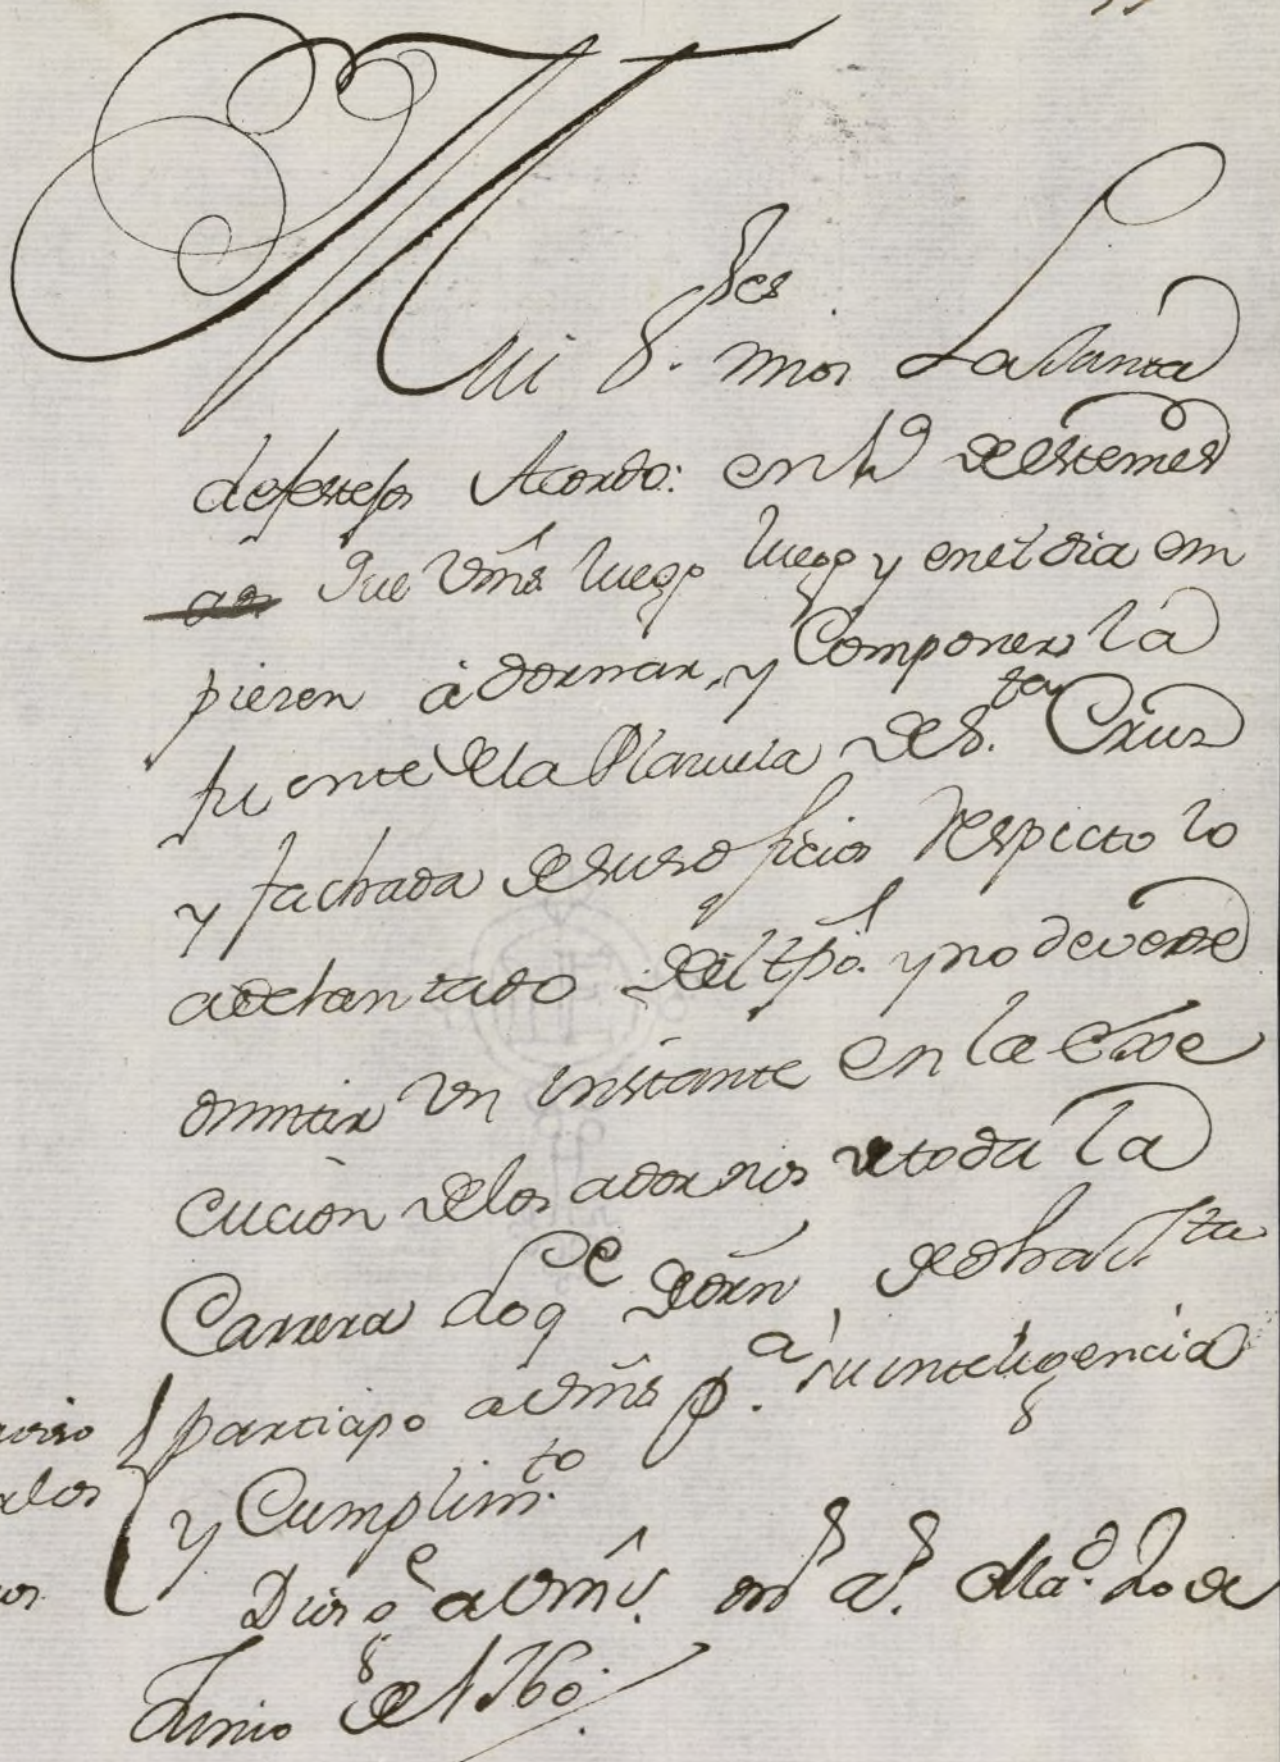 Mui S.res mios La Junta
de festejos Acordo: en h̃ de este mes
que Vm̃s luego luego y en el dia em
piezen à adornar, y Componer la
fuente de la Plazuela de S.ta Cruz
y fachada de sus oficios respecto lo
adelantado del tpõ. y no deverse
omitir un instante en la Exe
cucion de los adornos de toda la
Carrera lo q.e de orn̄ de dha J.ta
participo a Vm̃s p.a su inteligencia
y Cumplim.to
Dios g.e a Vm̃s. m.s a.s Ma.d 20 de
Junio de 1760.
aviso
a los